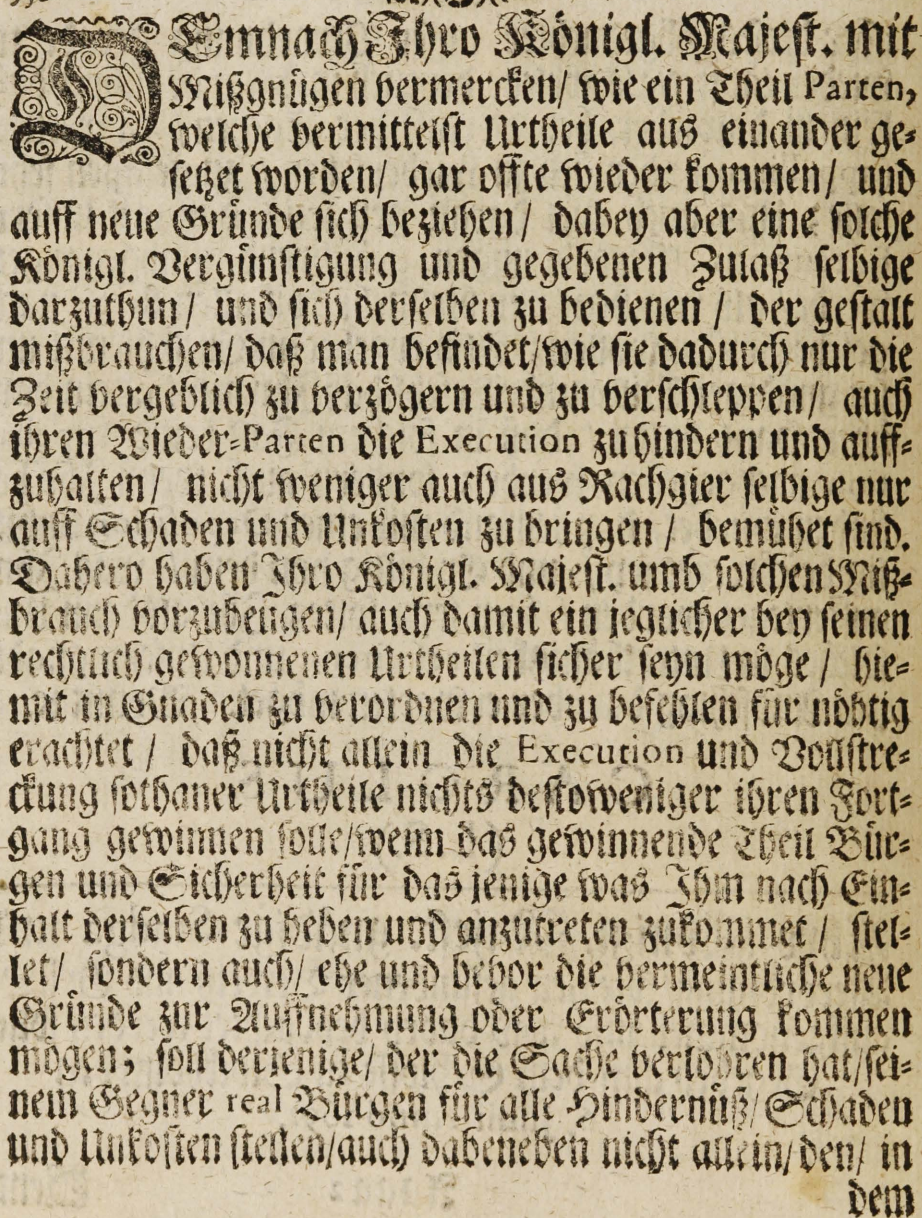 DEmnach Ihro Königl. Majest. mit
Mißgnügen vermercken/ wie ein Theil Parten,
welche vermittelst Urtheile aus einander ge-
setzet worden/ gar offte wieder kommen/ und
auff neue Gründe sich beziehen/ dabey aber eine solche
Königl. Vergünstigung und gegebenen Zulaß selbige
darzuthun/ und sich derselben zu bedienen/ der gestalt
mißbrauchen/ daß man befindet/wie sie dadurch nur die
Zeit vergeblich zu verzögern und zu verschleppen/ auch
ihren Wieder-Parten die Execution zu hindern und auff-
zuhalten/ nicht weniger auch aus Rachgier selbige nur
auff Schaden und Unkosten zu bringen/ bemühet sind.
Dahero haben Ihro Königl. Majest. umb solchen Miß-
brauch vorzubeugen/ auch damit ein jeglicher bey seinen
rechtlich gewonnenen Urtheilen sicher seyn möge/ hie-
mit in Gnaden zu verordnen und zu befehlen für nöhtig
erachtet/ daß nicht allein die Execution und Vollstre-
ckung sothaner Urtheile nichts destoweniger ihren Fort-
gang gewinnen solle/wenn das gewinnende Theil Bür-
gen und Sicherheit für das jenige was Ihm nach Ein-
halt derselben zu heben und anzutreten zukommet/ stel-
let/ sondern auch/ ehe und bevor die vermeintliche neue
Gründe zur Auffnehmung oder Erörterung kommen
mögen; soll derjenige/ der die Sache verlohren hat/sei-
nem Gegner real Bürgen für alle Hindernüß/Schaden
und Unkosten stellen/auch dabeneben nicht allein/den/ in
dem